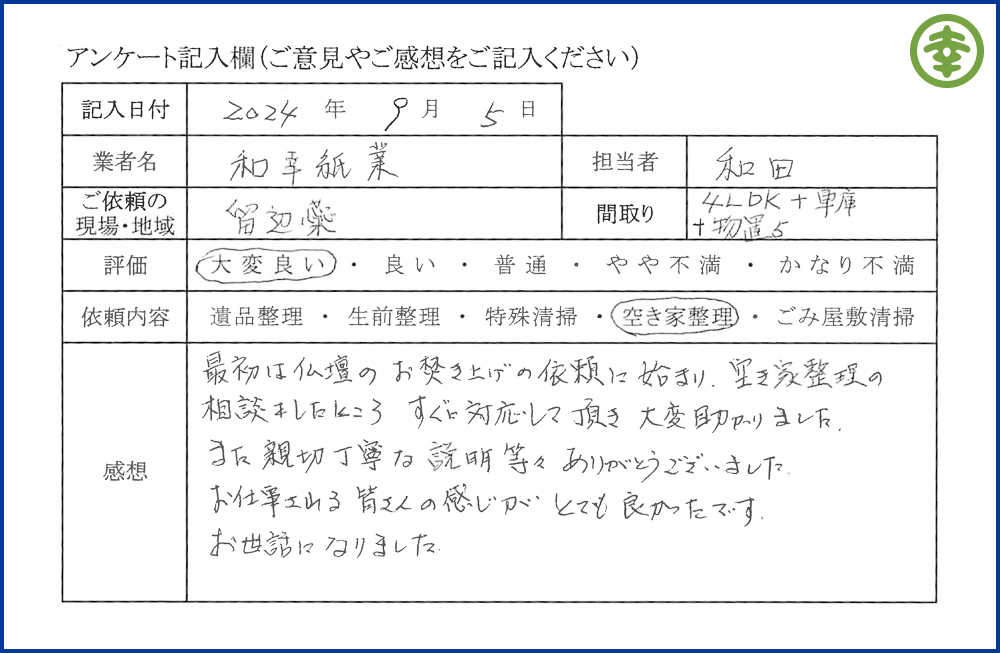 幸
アンケート記入欄(ご意見やご感想をご記入ください)
記入日付 2024 年 9 月 5 日
業者名 和幸紙業 担当者 和田
ご依頼の現場・地域 留辺蘂 間取り 4LDK+車庫+物置5
評価 大変良い ・ 良い ・ 普通 ・ やや不満 ・ かなり不満
依頼内容 遺品整理 ・ 生前整理 ・ 特殊清掃 ・ 空き家整理 ・ ごみ屋敷清掃
感想
最初は仏壇のお焚き上げの依頼に始まり、空き家整理の
相談をしたところ すぐに対応して頂き 大変助かりました。
また親切丁寧な説明等々ありがとうございました。
お仕事される皆さんの感じがとても良かったです。
お世話になりました。